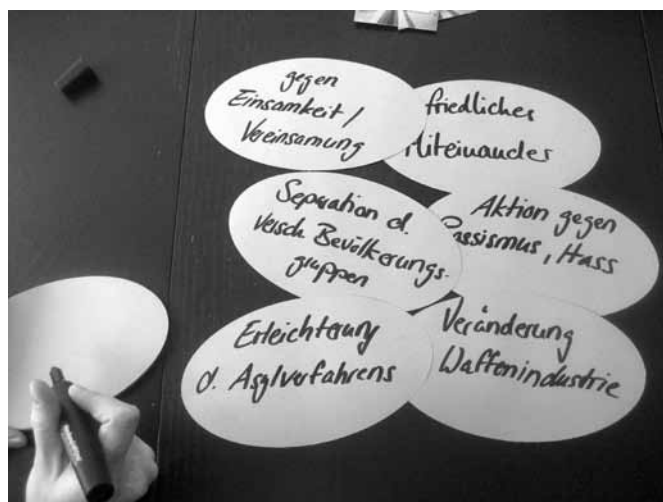 gegen
Einsamkeit /
Vereinsamung
friedliches
Miteinander
Separation d.
versch. Bevölkerungs-
gruppen
Aktion gegen
Rassismus, Hass
Erleichterung
d. Asylverfahrens
Veränderung
Waffenindustrie